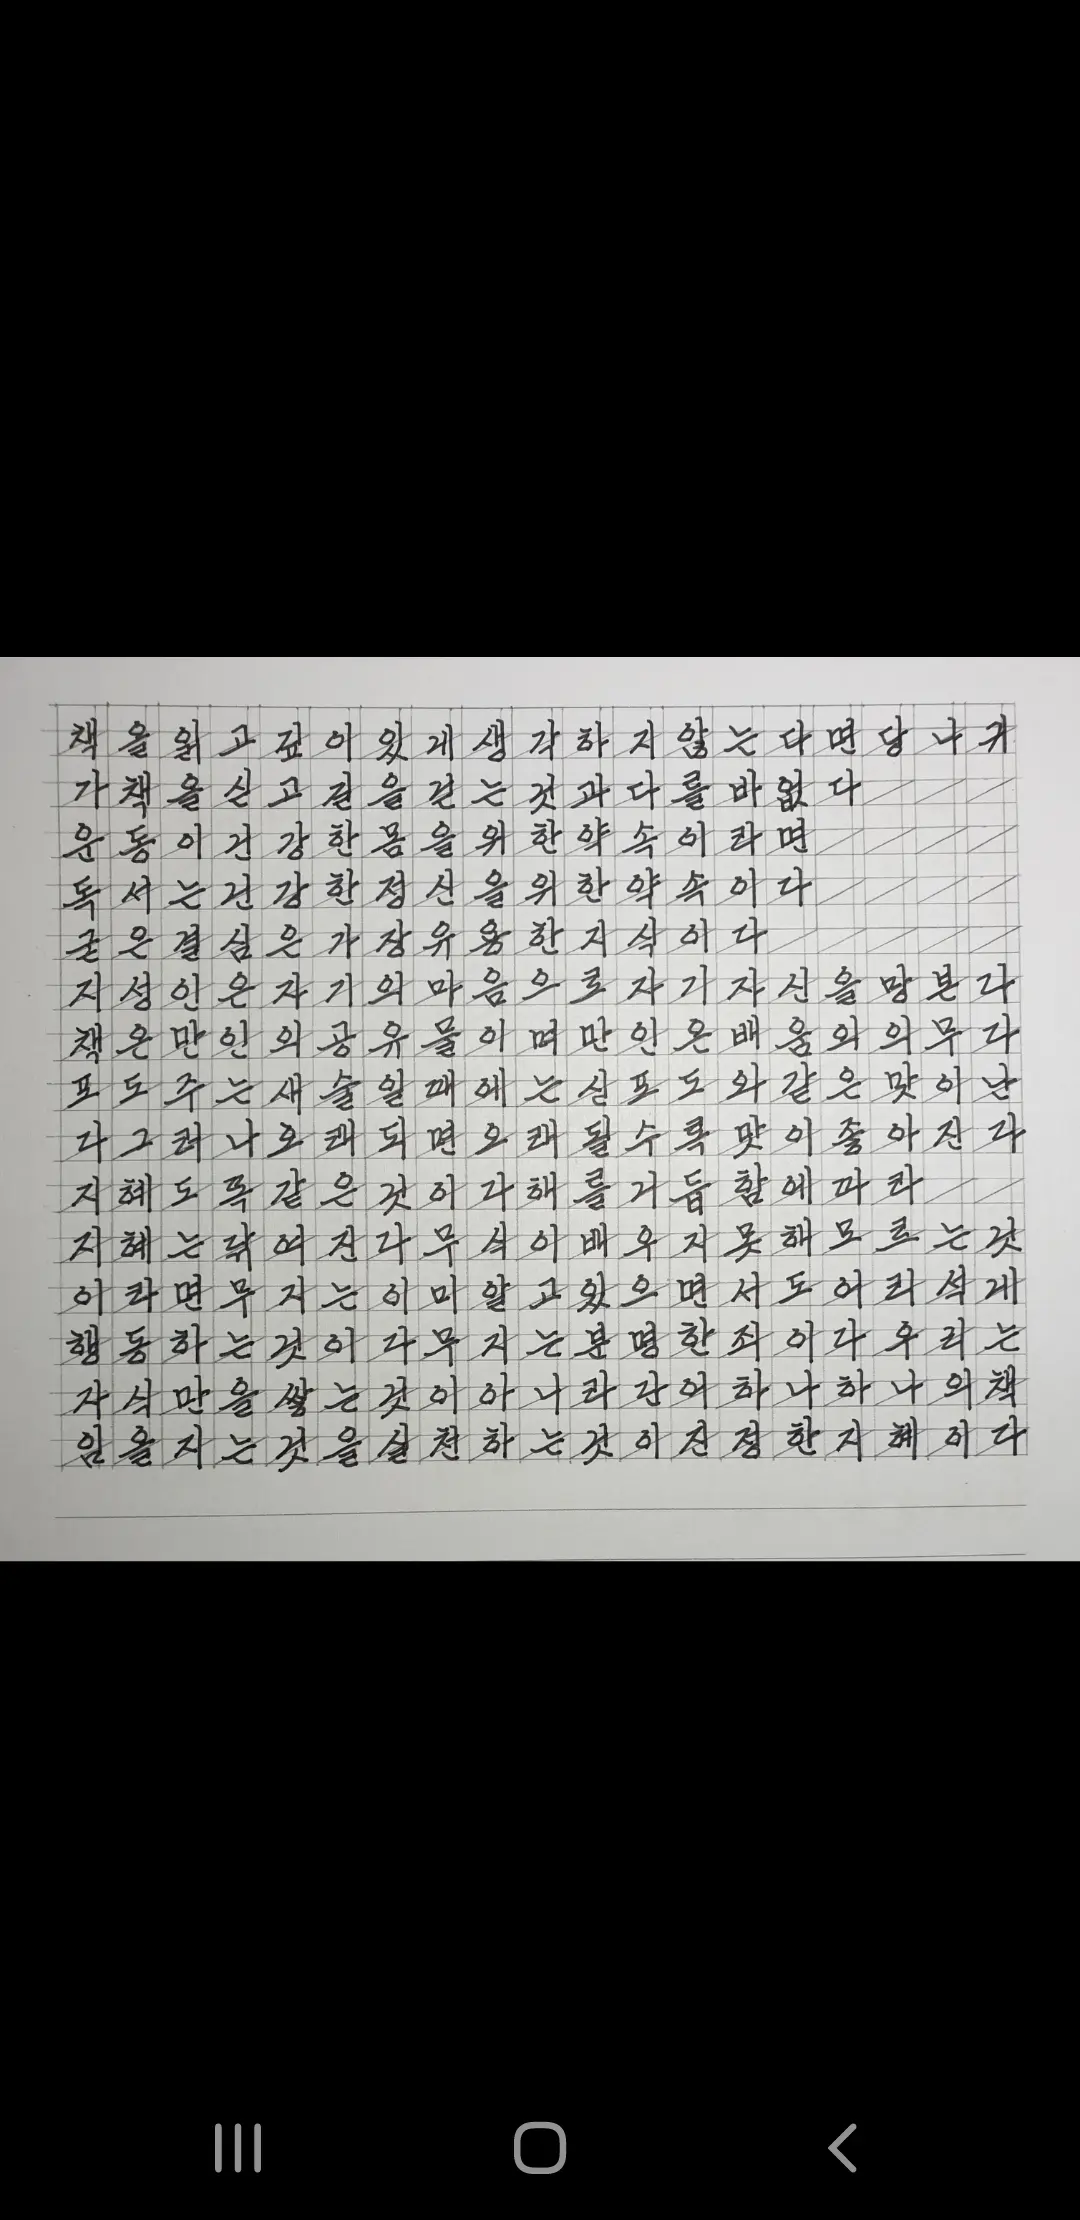 책을읽고깊이있게생각하지않는다면당나귀
가책을싣고길을걷는것과다를바없다
운동이건강한몸을위한약속이라면
독서는건강한정신을위한약속이다
굳은결심은가장유용한지식이다
지성인은자기의마음으로자기자신을망본다
책은만인의공유물이며만인은배움의의무다
포도주는새술일때에는신포도와같은맛이난
다그러나오래되면오래될수록맛이좋아진다
지혜도똑같은것이다해를거듭함에따라
지혜는닦여진다무식이배우지못해모르는것
이라면무지는이미알고있으면서도어리석게
행동하는것이다무지는분명한죄이다우리는
지식만을쌓는것이아니라단어하나하나의책
임을지는것을실천하는것이진정한지혜이다